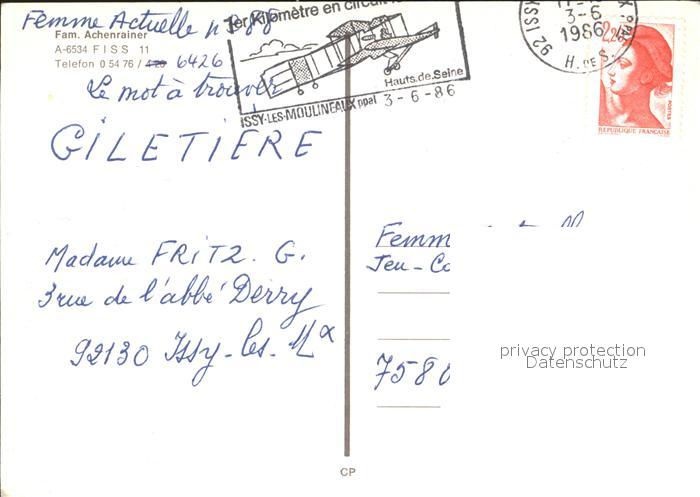 Femme Actuelle n° 88
Fam. Achenrainer
A-6534 FISS 11
Telefon 0 54 76 / 420 6426
Le mot à trouver
GILETIÈRE
Madame FRITZ. G.
3 rue de l'abbé Derry
92130 Issy-les-Mx
1er Kilomètre en circuit
Hauts.de.Seine
ISSY-LES-MOULINEAUX ppal 3-6-86
92 ISSY
3-6
1986
H. DE S.
2,20
POSTES
REPUBLIQUE FRANÇAISE
Femm
Jeu-Co
7580
privacy protection
Datenschutz
CP